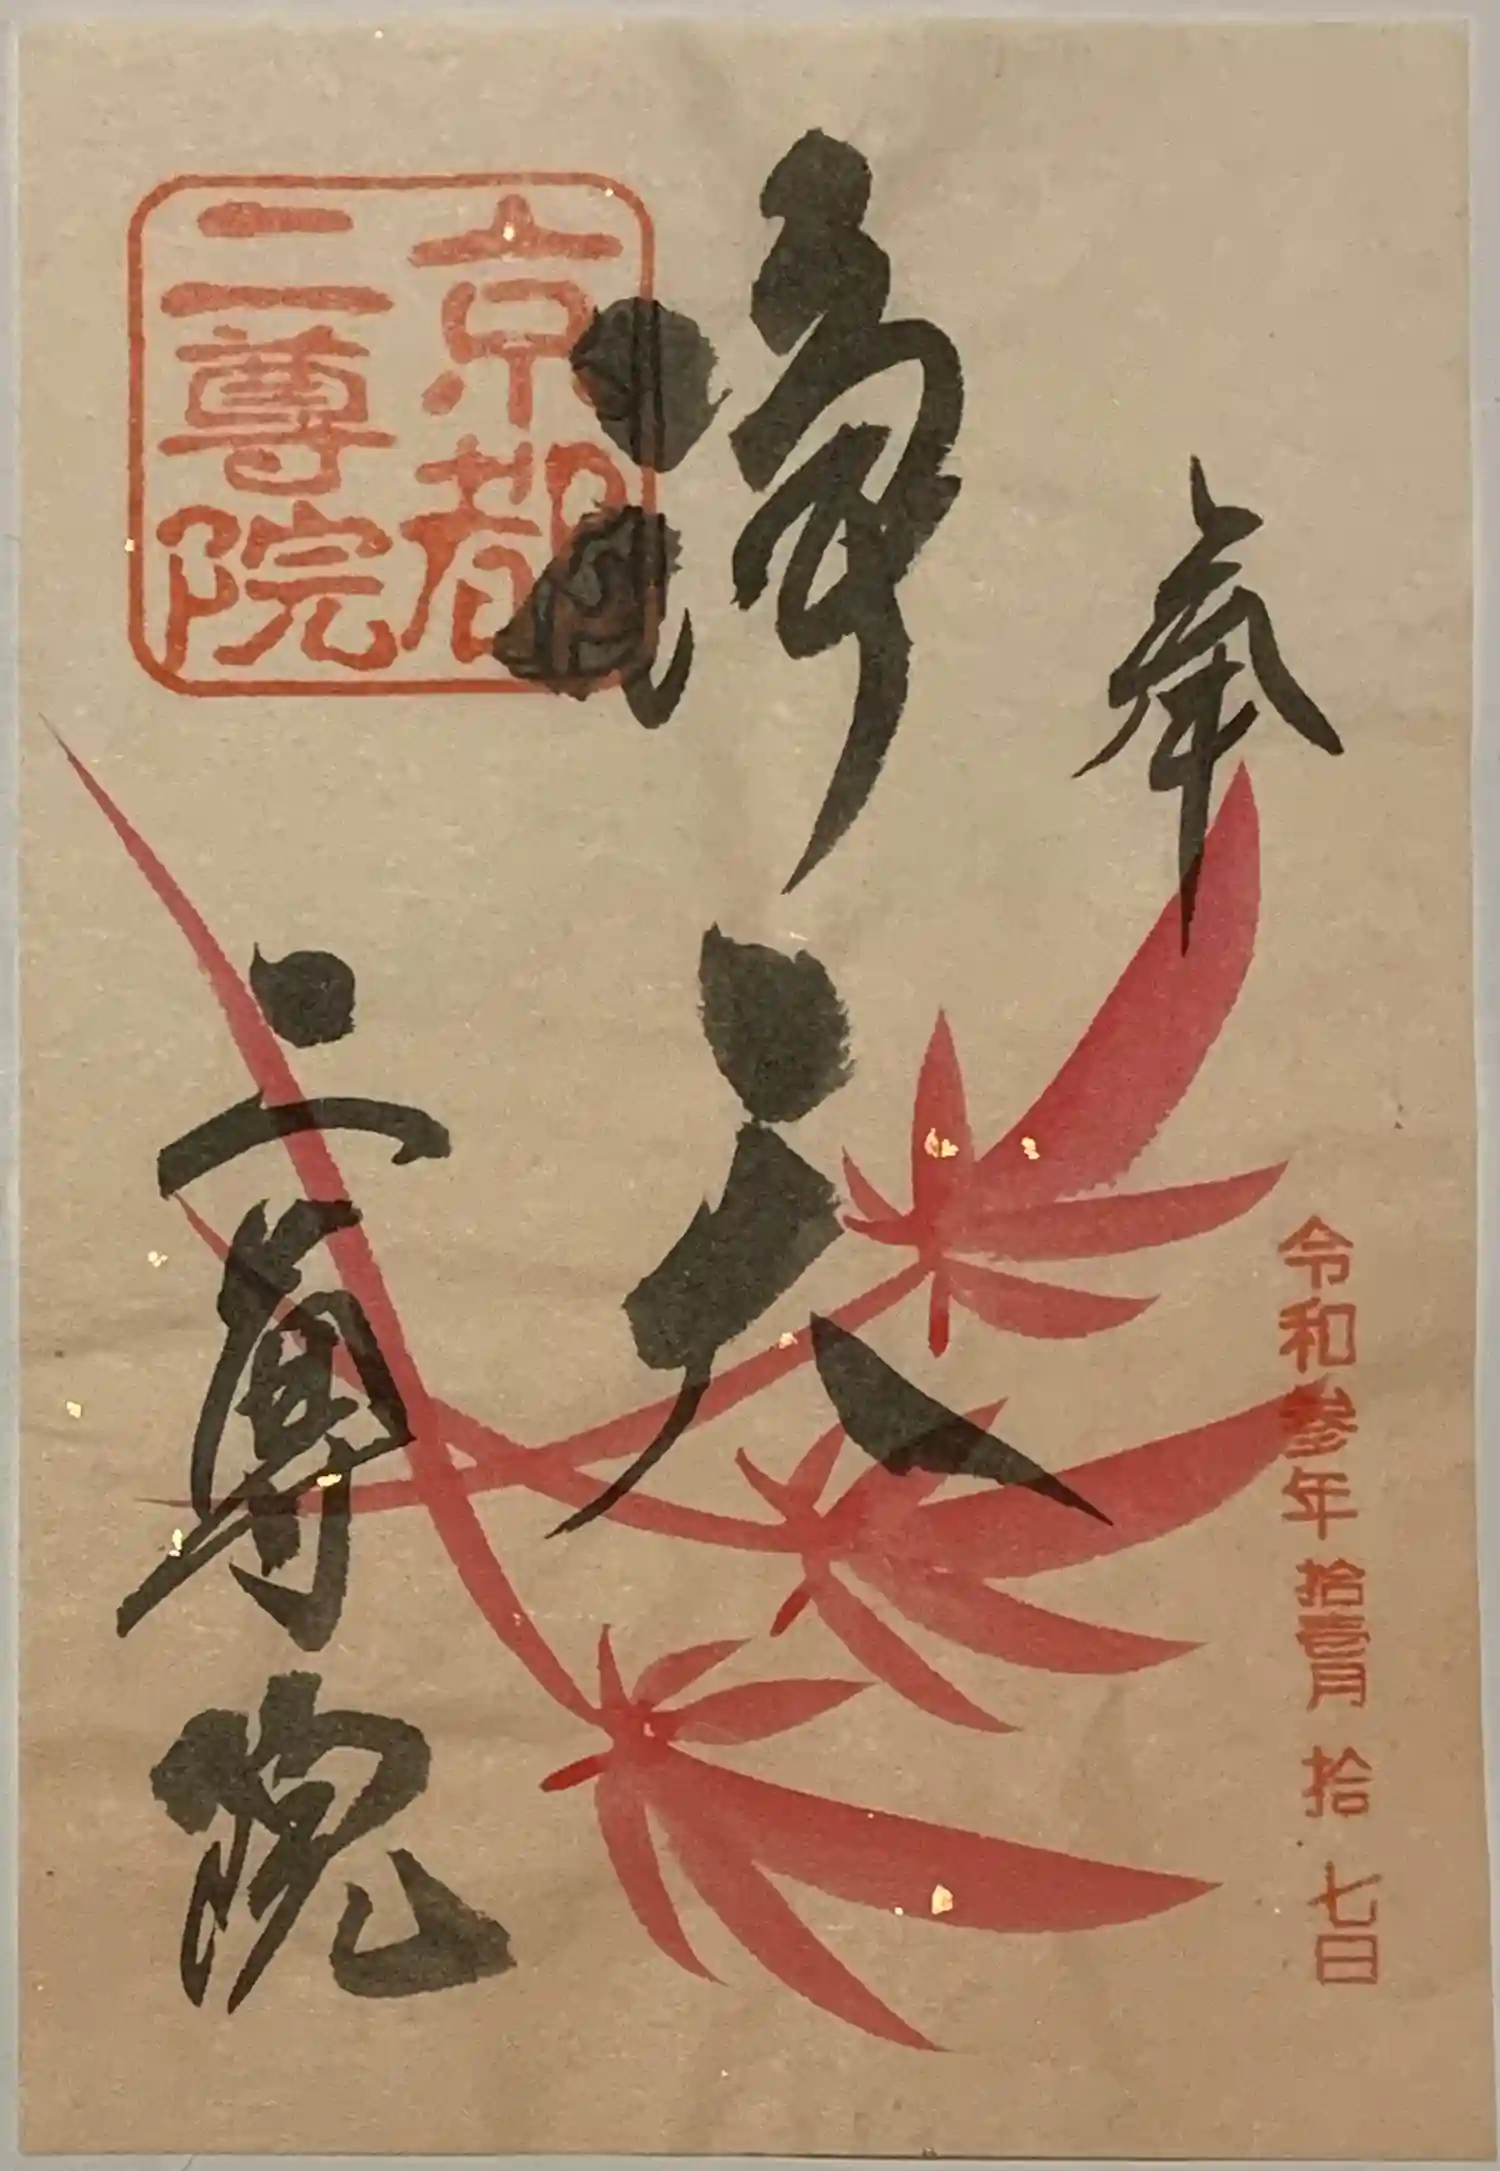 奉
令和参年拾壹月拾七日
浄
京都
二尊院
二尊院